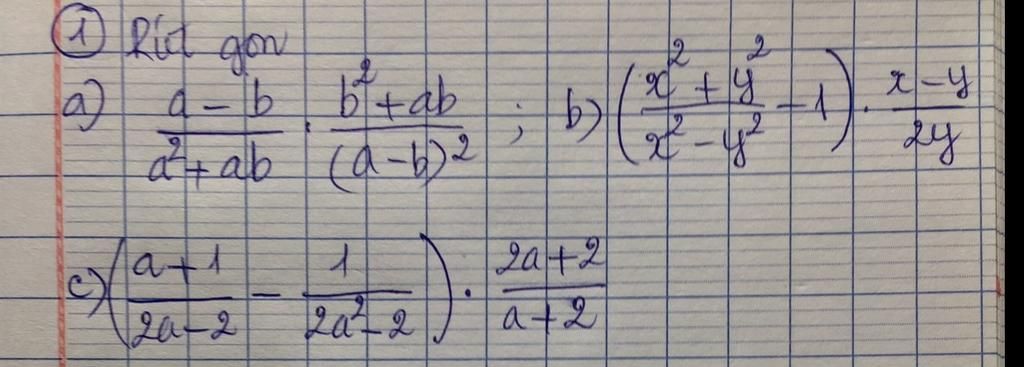 ① Rút gọn
a) \frac{a-b}{a^2+ab} \cdot \frac{b^2+ab}{(a-b)^2} ; b) \left(\frac{x^2+y^2}{x^2-y^2} - 1\right) \cdot \frac{x-y}{2y}
c) \left(\frac{a+1}{2a-2} - \frac{1}{2a^2-2}\right) \cdot \frac{2a+2}{a+2}